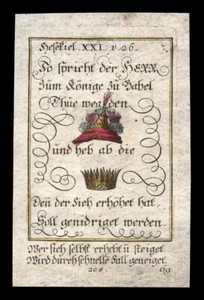 Hesekiel XXI. v. 26.
So spricht der HERR
zum Könige zu Babel
Thue weg den
und heb ab die
Den der Sich erhöhet hat
Soll genidriget werden.
Wer sich selbst erhebt u. steiget
Wird durch schnelle Fall geneiget.
208